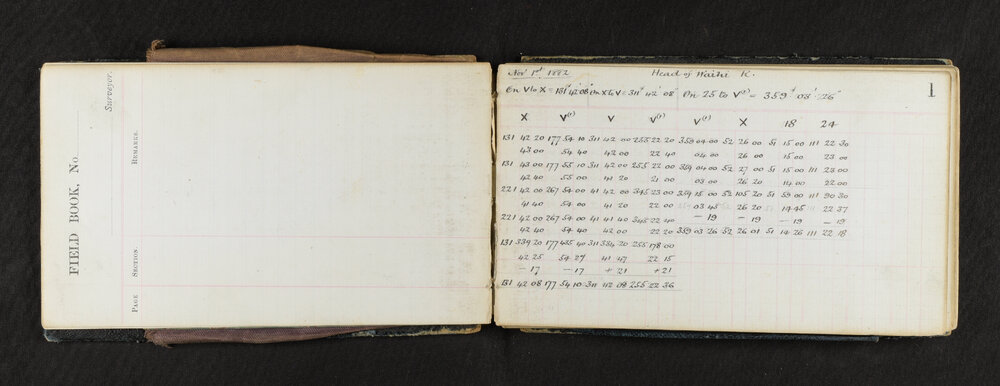 FIELD BOOK, No.
Surveyor.
PAGE SECTION REMARKS.
Nov 1st 1882 Head of Waihi K. 1
On V to X = 131° 42' 08" On X to V = 311° 42' 08" On 25 to V(2) = 359° 03' 26"
X V(1) V V(2) V(1) X 18 24
131 42 20 177 54 10 311 42 00 255 22 20 359 04 00 52 26 00 51 15 00 111 22 30
43 00 54 40 42 00 22 40 04 00 26 00 15 00 23 00
131 43 00 177 55 10 311 42 00 255 22 00 359 04 00 52 27 00 51 15 00 111 23 00
42 40 55 00 41 20 21 00 03 00 26 20 14 00 22 00
221 42 00 267 54 00 41 42 00 345 23 00 359 15 00 52 105 20 51 59 00 111 90 30
41 40 54 00 42 00 22 00 03 45 26 20 14 45 22 37
221 42 00 267 54 00 41 41 40 345 22 40 - 19 - 19 - 19 - 19
42 40 54 40 42 00 22 20 359 03 26 52 26 01 51 14 26 111 22 18
131 339 20 177 435 40 311 334 20 255 178 00
42 25 54 27 41 47 22 15
- 17 - 17 + 21 + 21
131 42 08 177 54 10 311 42 08 255 22 36